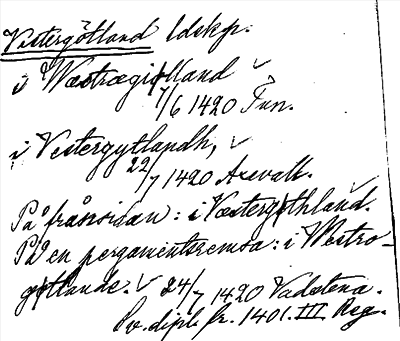 Vestergötland ldskp.
i Wæstrægiøtland
7/6 1420 Tun.
i Vestergytlandh,
22/7 1420 Arevall.
På frånsidan: i Væstergøthland.
På en pergamentsremsa: i Westro-
gøtlande. 24/7 1420 Vadstena.
Sv. dipl. fr. 1401. III. Reg.